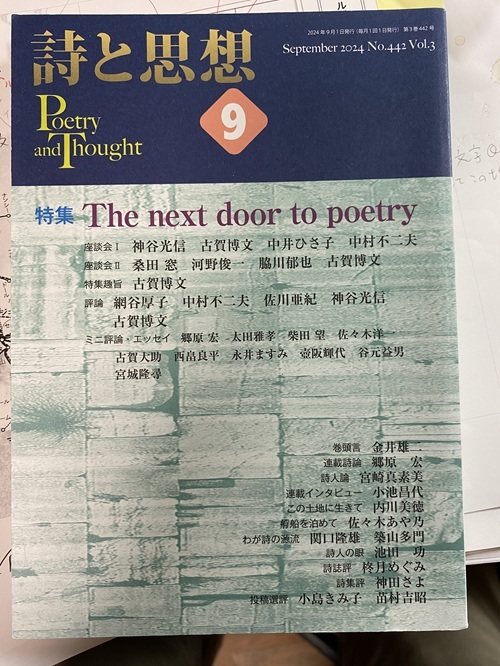 2024年9月1日発行(毎月1回1日発行) 第3巻442号
September 2024 No.442 Vol.3
詩と思想
Poetry
and Thought
9
特集 The next door to poetry
座談会Ⅰ 神谷光信 古賀博文 中井ひさ子 中村不二夫
座談会Ⅱ 桑田窓 河野俊一 脇川郁也 古賀博文
特集趣旨 古賀博文
評論 網谷厚子 中村不二夫 佐川亜紀 神谷光信
古賀博文
ミニ評論・エッセイ 郷原宏 太田雅孝 柴田望 佐々木洋一
古賀大助 西畠良平 永井ますみ 壺阪輝代 谷元益男
宮城隆尋
巻頭言 金井雄二
連載詩論 郷原宏
詩人論 宮崎真素美
連載インタビュー 小池昌代
この土地に生きて 内川美徳
船を泊めて 佐々木あや乃
わが詩の源流 関口隆雄 築山多門
詩人の眼 池田功
詩誌評 柊月めぐみ
詩集評 神田さよ
投稿選評 小島きみ子 苗村吉昭
文字